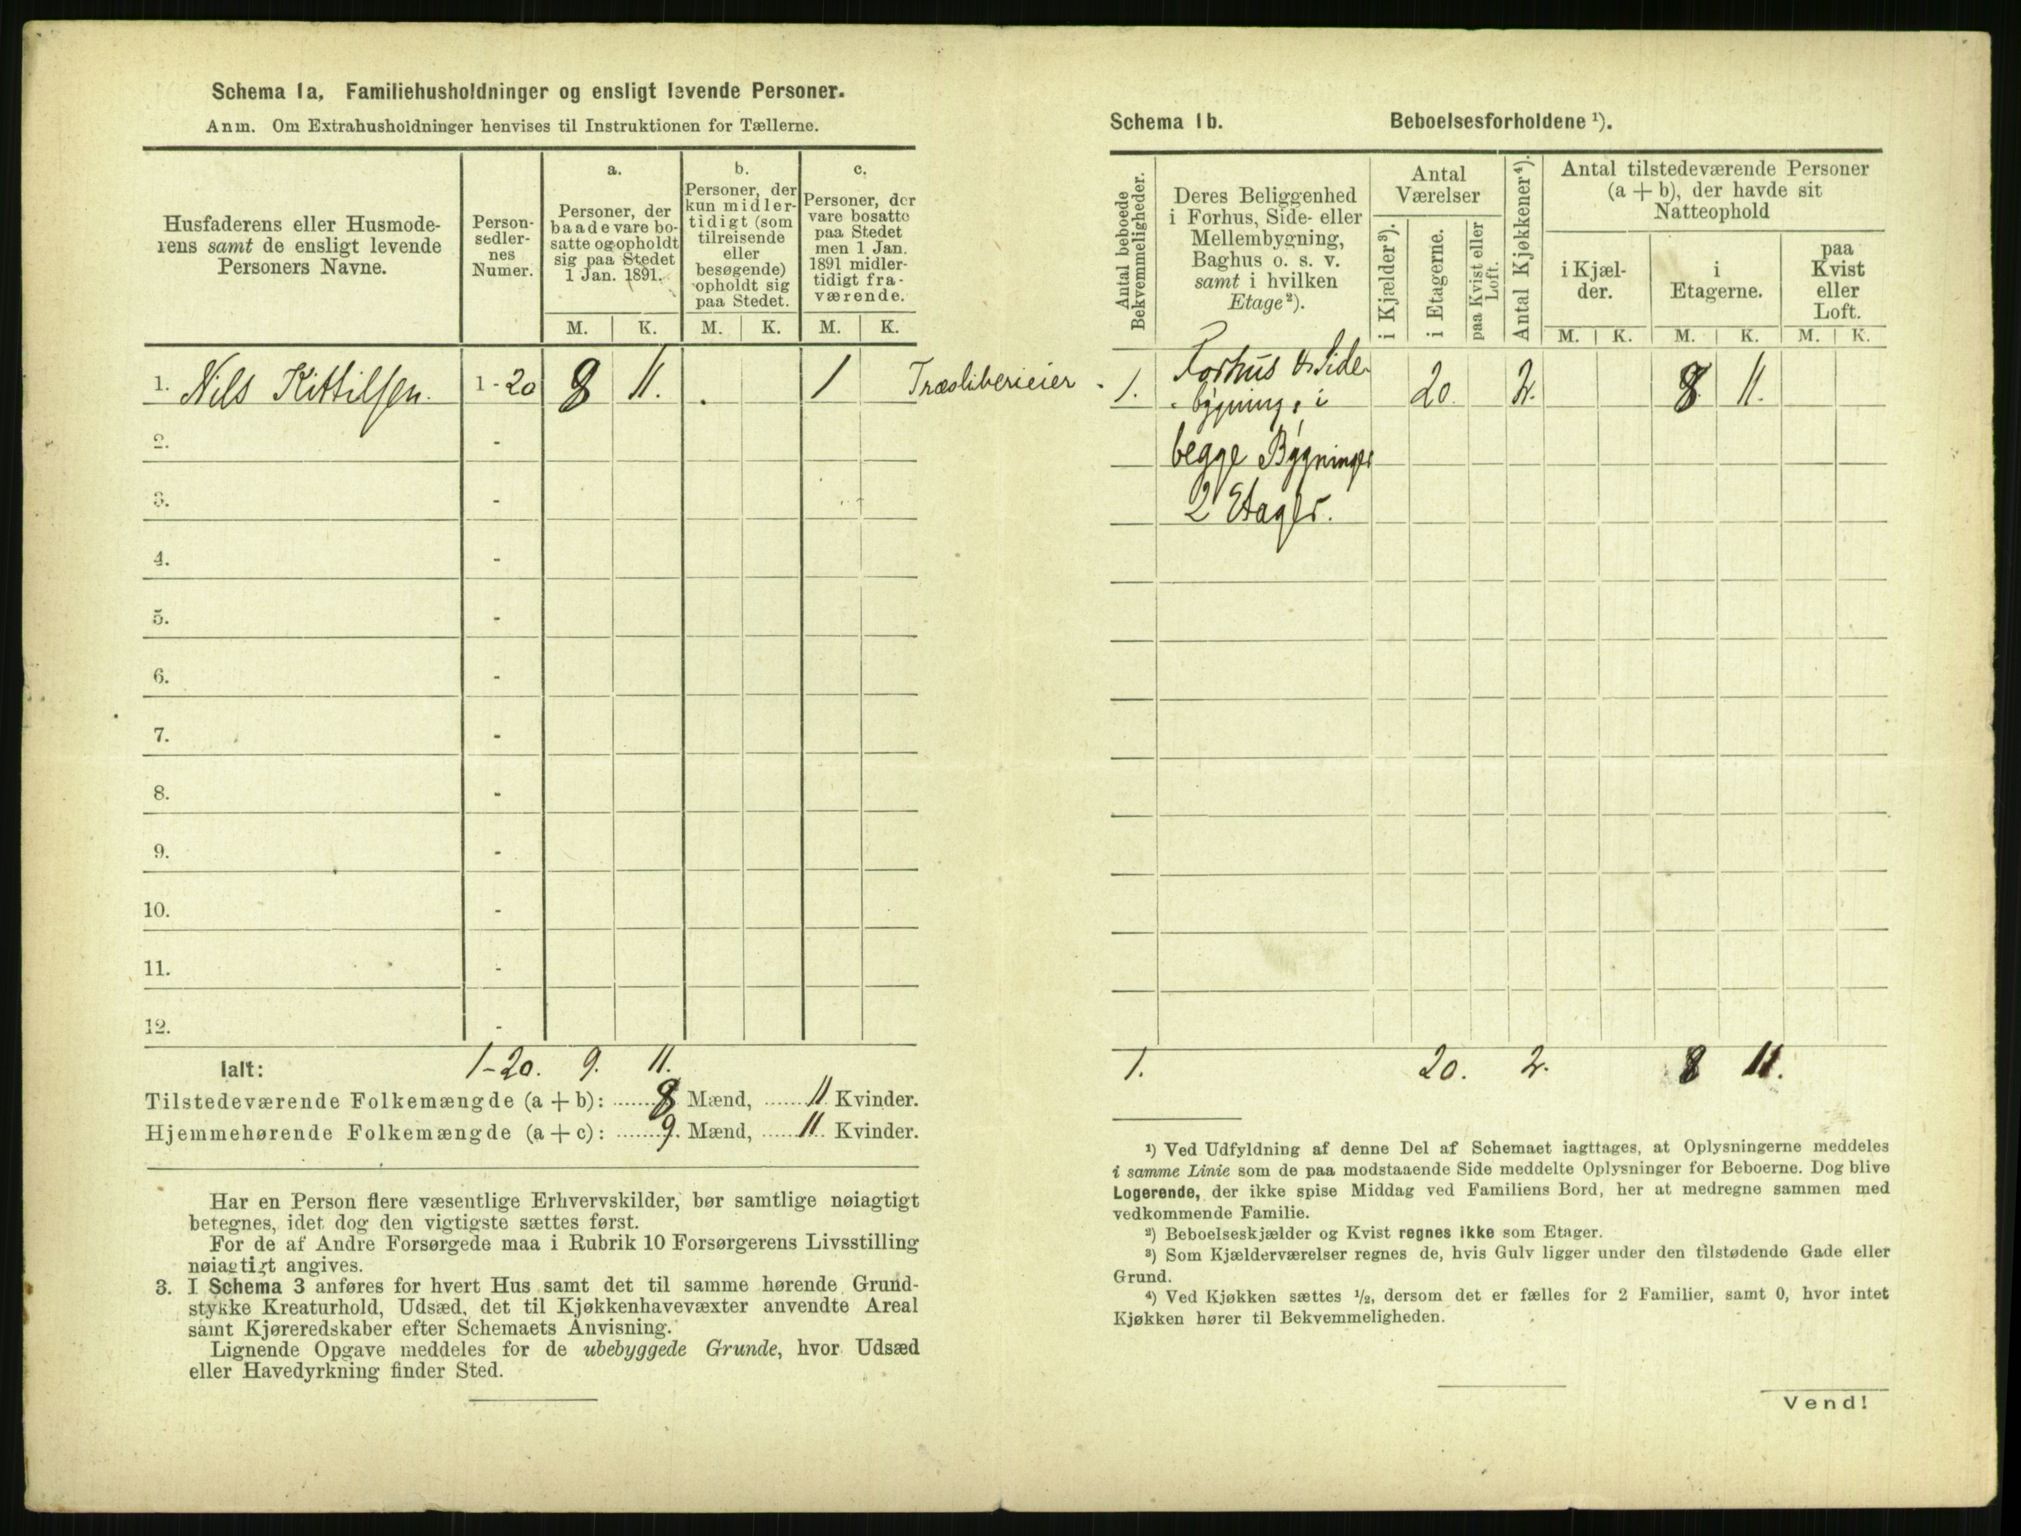 Schema 1a, Familiehusholdninger og ensligt levende Personer.
Anm. Om Extrahusholdninger henvises til Instruktionen for Tællerne.
Husfaderens eller Husmode-
rens samt de ensligt levende
Personers Navne.
Person-
sedler-
nes
Numer.
a.
Personer, der
baade vare bo-
satte og opholdt
sig paa Stedet
1 Jan. 1891.
b.
Personer, der
kun midler-
tidigt (som
tilreisende
eller
besøgende)
opholdt sig
paa Stedet.
c.
Personer, der
vare bosatte
paa Stedet
men 1 Jan.
1891 midler-
tidigt fra-
værende.
M. K. M. K. M. K.
1. Nils Kittilsen. 1-20 8 11. . 1
2. -
3. -
4. -
5. -
6. -
7. -
8. -
9. -
10. -
11. -
12. -
Ialt: 1-20. 9. 11.
Tilstedeværende Folkemængde (a + b): 8 Mænd, 11 Kvinder.
Hjemmehørende Folkemængde (a + c): 9. Mænd, 11 Kvinder.
Har en Person flere væsentlige Erhvervskilder, bør samtlige nøiagtigt
betegnes, idet dog den vigtigste sættes først.
For de af Andre Forsørgede maa i Rubrik 10 Forsørgerens Livsstilling
nøiagtigt angives.
3. I Schema 3 anføres for hvert Hus samt det til samme hørende Grund-
stykke Kreaturhold, Udsæd, det til Kjøkkenhavevæxter anvendte Areal
samt Kjøreredskaber efter Schemaets Anvisning.
Lignende Opgave meddeles for de ubebyggede Grunde, hvor Udsæd
eller Havedyrkning finder Sted.
Schema 1b. Beboelsesforholdene ¹).
Antal beboede
Bekvemmeligheder.
Deres Beliggenhed
i Forhus, Side- eller
Mellembygning,
Baghus o. s. v.
samt i hvilken
Etage²).
Antal
Værelser
i Kjælder³).
i Etagerne.
paa Kvist eller
Loft.
Antal Kjøkkener⁴).
Antal tilstedeværende Personer
(a + b), der havde sit
Natteophold
i Kjæl-
der.
i
Etagerne.
paa
Kvist
eller
Loft.
M. K. M. K. M. K.
1. Forhus & Side- 20. 2. 8 11.
bygning, i
begge Bygninger
2 Etager.
1. 20. 2. 8 11.
¹) Ved Udfyldning af denne Del af Schemaet iagttages, at Oplysningerne meddeles
i samme Linie som de paa modstaaende Side meddelte Oplysninger for Beboerne. Dog blive
Logerende, der ikke spise Middag ved Familiens Bord, her at medregne sammen med
vedkommende Familie.
²) Beboelseskjælder og Kvist regnes ikke som Etager.
³) Som Kjælderværelser regnes de, hvis Gulv ligger under den tilstødende Gade eller
Grund.
⁴) Ved Kjøkken sættes ½, dersom det er fælles for 2 Familier, samt 0, hvor intet
Kjøkken hører til Bekvemmeligheden.
Vend!